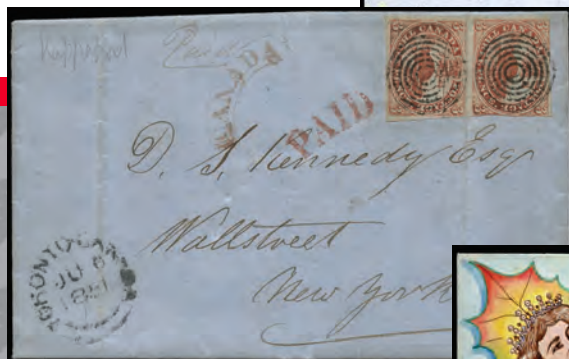 Paid
CANADA
PAID
D. S. Kennedy Esq
Wallstreet
New York
TORONTO
JU 6
1851